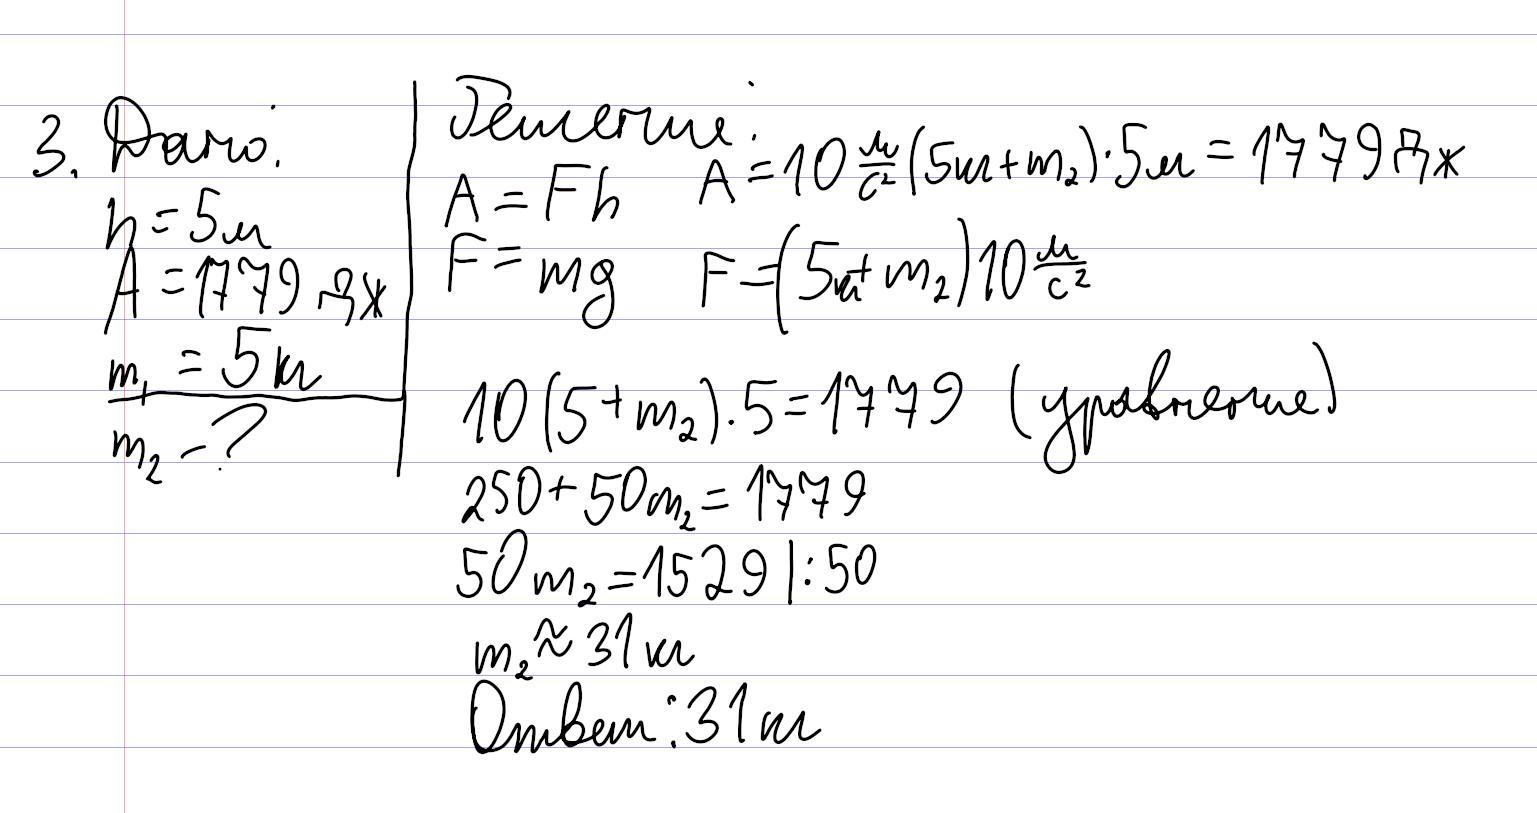 3. Дано:
h = 5м
A = 1779 Дж
m₁ = 5кг
m₂ - ?
Решение:
A = Fh A = 10 м/с² (5кг + m₂) · 5м = 1779 Дж
F = mg F = (5кг + m₂) 10 м/с²
10 (5 + m₂) · 5 = 1779 (уравнение)
250 + 50m₂ = 1779
50m₂ = 1529 |: 50
m₂ ≈ 31 кг
Ответ: 31 кг